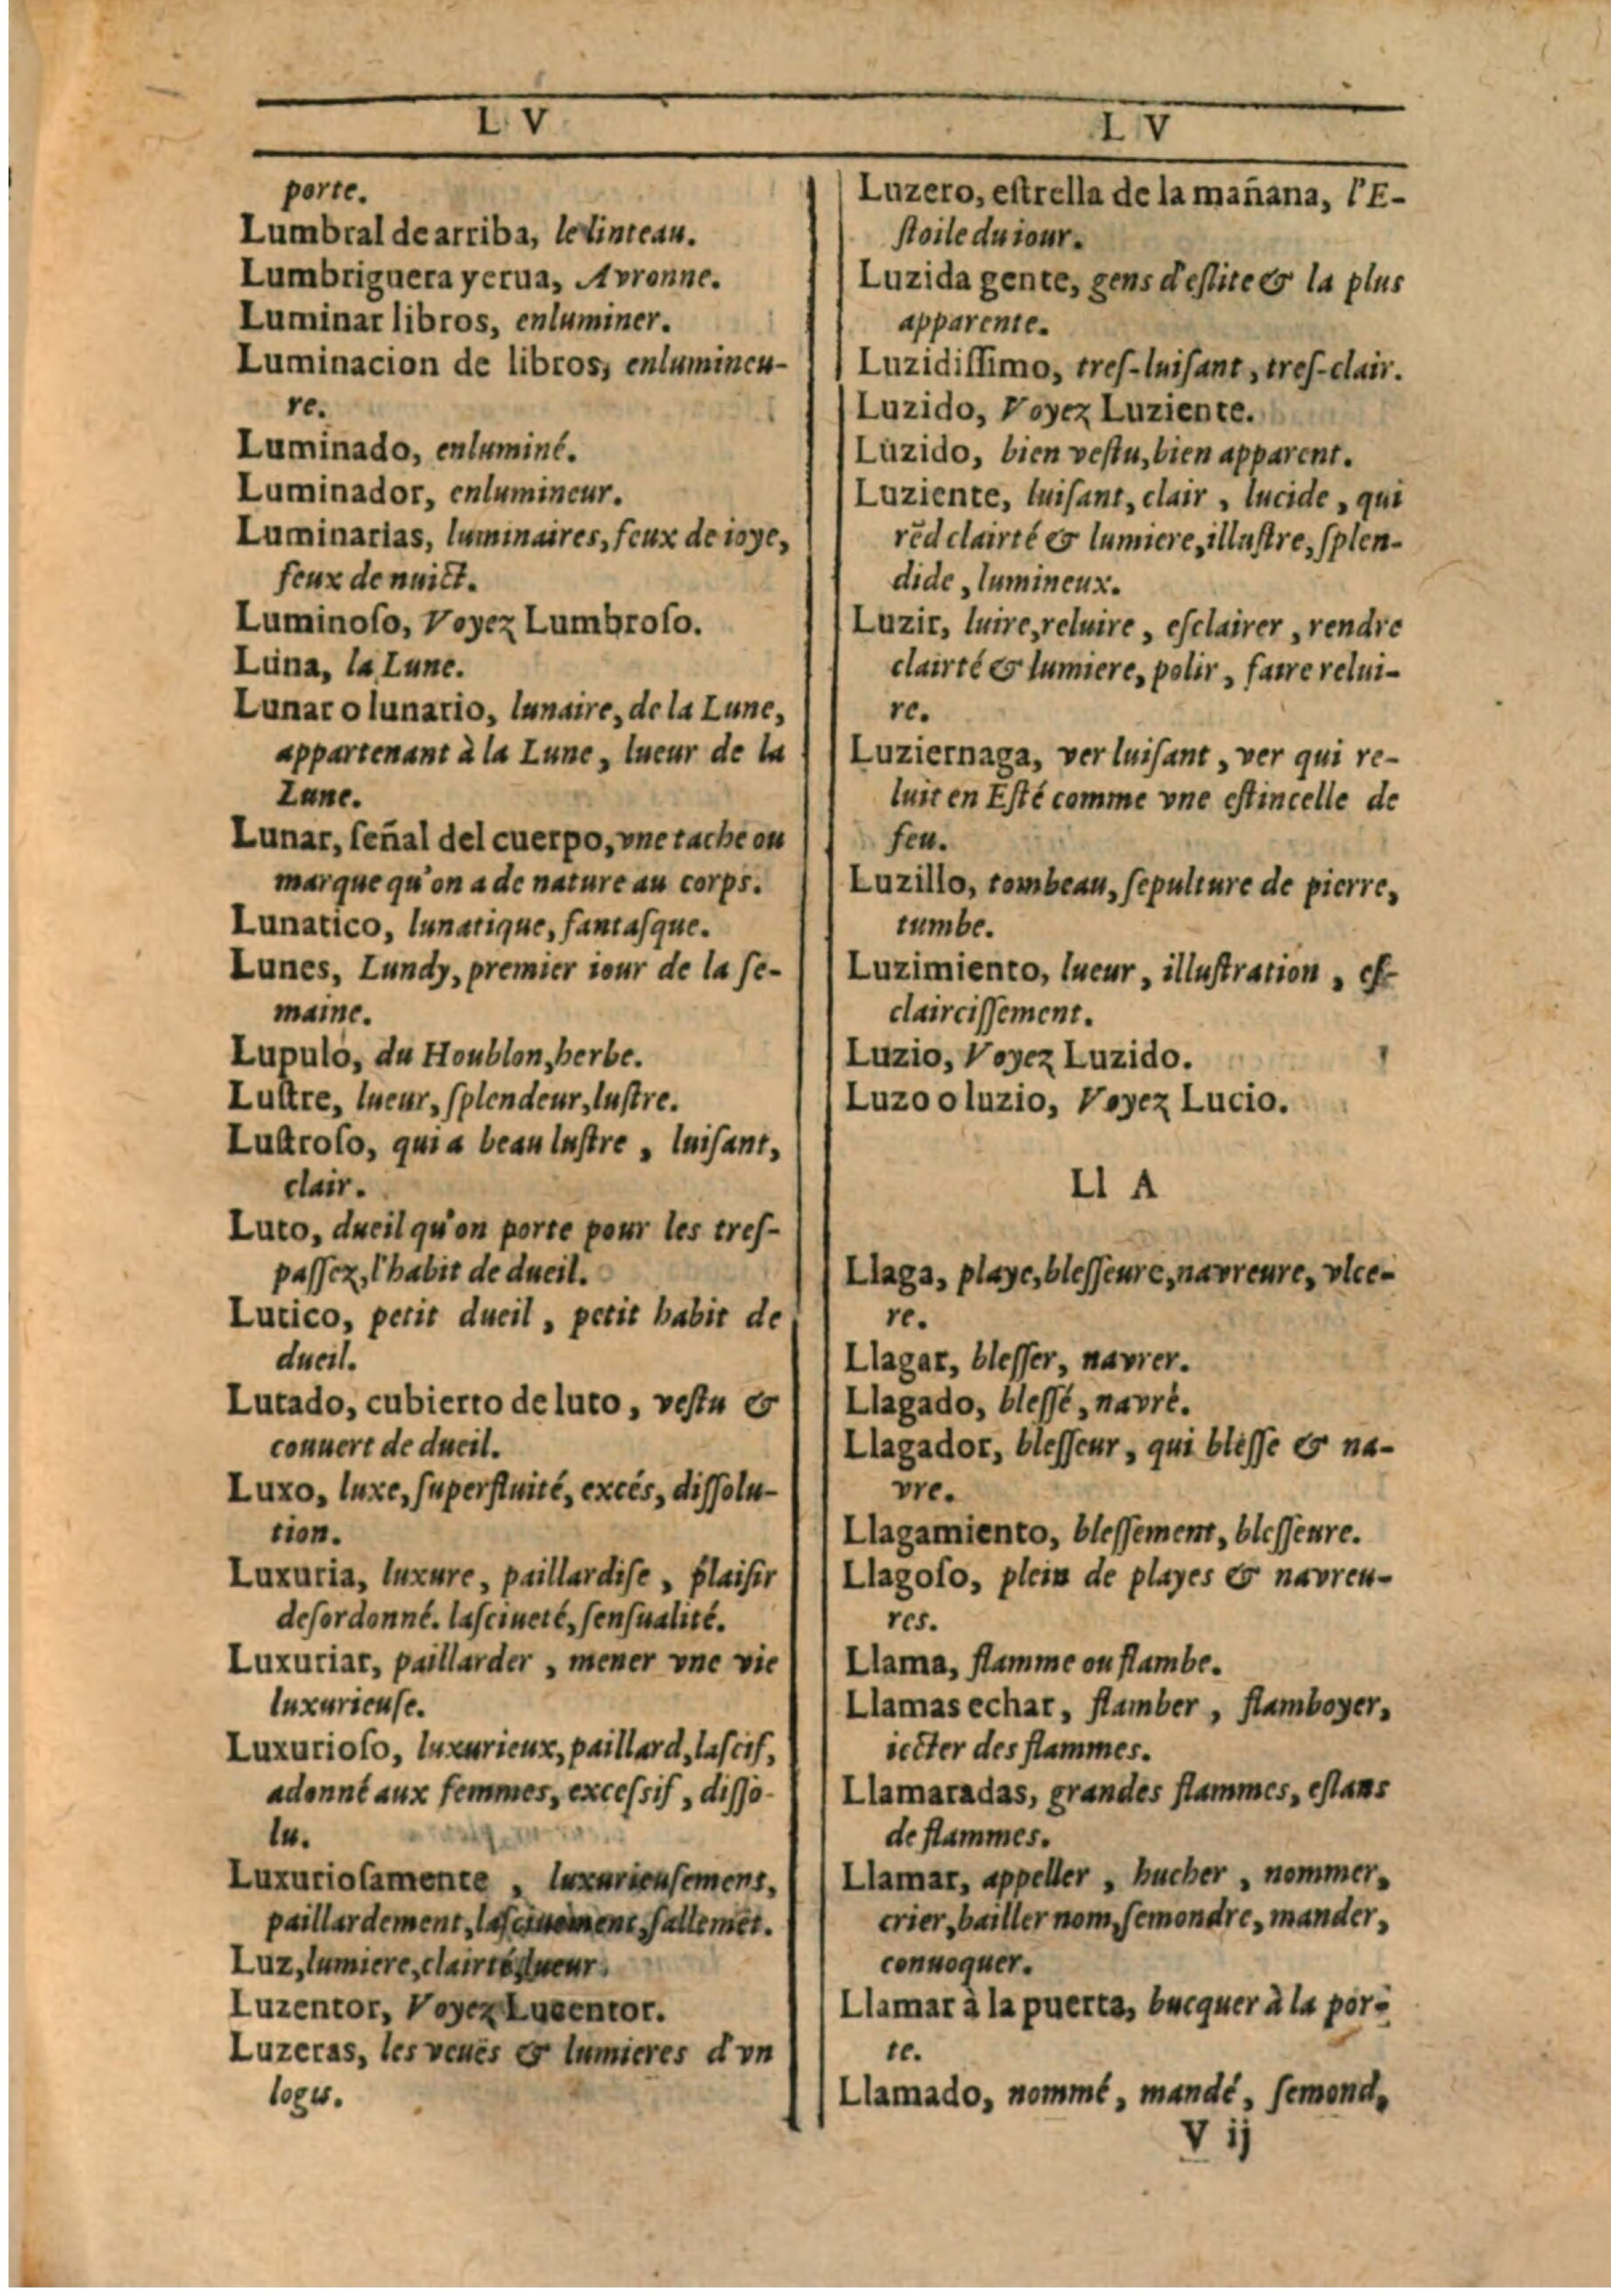 L V
porte.
Lumbral de arriba, le linteau.
Lumbriguera yerua, Avronne.
Luminar libros, enluminer.
Luminacion de libros, enlumineu-
re.
Luminado, enluminé.
Luminador, enlumineur.
Luminarias, luminaires, feux de ioye,
feux de nuict.
Luminoſo, Voyez Lumbroſo.
Luna, la Lune.
Lunar o lunario, lunaire, de la Lune,
appartenant à la Lune, lueur de la
Lune.
Lunar, ſeñal del cuerpo, vne tache ou
marque qu'on a de nature au corps.
Lunatico, lunatique, fantaſque.
Lunes, Lundy, premier iour de la ſe-
maine.
Lupulo, du Houblon, herbe.
Luſtre, lueur, ſplendeur, luſtre.
Luſtroſo, qui a beau luſtre, luiſant,
clair.
Luto, dueil qu'on porte pour les treſ-
paſſez, l'habit de dueil.
Lutico, petit dueil, petit habit de
dueil.
Lutado, cubierto de luto, veſtu &
conuert de dueil.
Luxo, luxe, ſuperfluité, excés, diſſolu-
tion.
Luxuria, luxure, paillardiſe, plaiſir
deſordonné. laſciueté, ſenſualité.
Luxuriar, paillarder, mener vne vie
luxurieuſe.
Luxurioſo, luxurieux, paillard, laſcif,
adonné aux femmes, exceſſif, diſſo-
lu.
Luxurioſamente, luxurieuſement,
paillardement, laſciuement, ſallemẽt.
Luz, lumiere, clairté, lueur.
Luzentor, Voyez Lucentor.
Luzeras, les veuës & lumieres d'vn
logis.
L V
Luzero, eſtrella de la mañana, l'E-
ſtoile du iour.
Luzida gente, gens d'eſlite & la plus
apparente.
Luzidiſſimo, treſ-luiſant, treſ-clair.
Luzido, Voyez Luziente.
Luzido, bien veſtu, bien apparent.
Luziente, luiſant, clair, lucide, qui
rẽd clairté & lumiere, illuſtre, ſplen-
dide, lumineux.
Luzir, luire, reluire, eſclairer, rendre
clairté & lumiere, polir, faire relui-
re.
Luziernaga, ver luiſant, ver qui re-
luit en Eſté comme vne eſtincelle de
feu.
Luzillo, tombeau, ſepulture de pierre,
tumbe.
Luzimiento, lueur, illuſtration, eſ-
clairciſſement.
Luzio, Voyez Luzido.
Luzo o luzio, Voyez Lucio.
Ll A
Llaga, playe, bleſſeure, navreure, vlce-
re.
Llagar, bleſſer, navrer.
Llagado, bleſſé, navré.
Llagador, bleſſeur, qui bleſſe & na-
vre.
Llagamiento, bleſſement, bleſſeure.
Llagoſo, plein de playes & navreu-
res.
Llama, flamme ou flambe.
Llamas echar, flamber, flamboyer,
iecter des flammes.
Llamaradas, grandes flammes, eſlans
de flammes.
Llamar, appeller, hucher, nommer,
crier, bailler nom, ſemondre, mander,
conuoquer.
Llamar à la puerta, bucquer à la por-
te.
Llamado, nommé, mandé, ſemond,
V ij